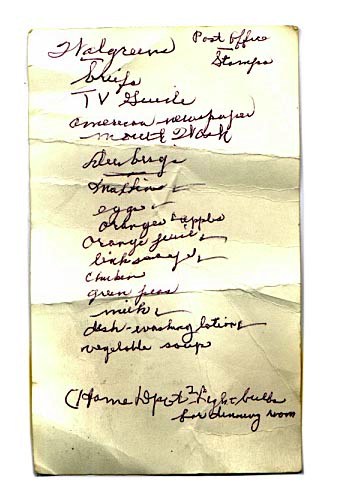 Walgreens
Post Office
Stamps
briefs
TV Guide
american newspaper
mouth Wash
muffins
eggs
oranges & apples
orange juice
link sausage
chicken
green peas
milk
dish-washing lotion
vegetable soup
(Home Depot 2 Light bulbs
for dinning room